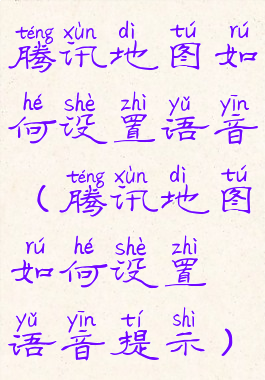 téng xùn dì tú rú
腾讯地图如
hé shè zhì yǔ yīn
何设置语音
téng xùn dì tú
（腾讯地图
rú hé shè zhì
如何设置
yǔ yīn tí shì
语音提示）